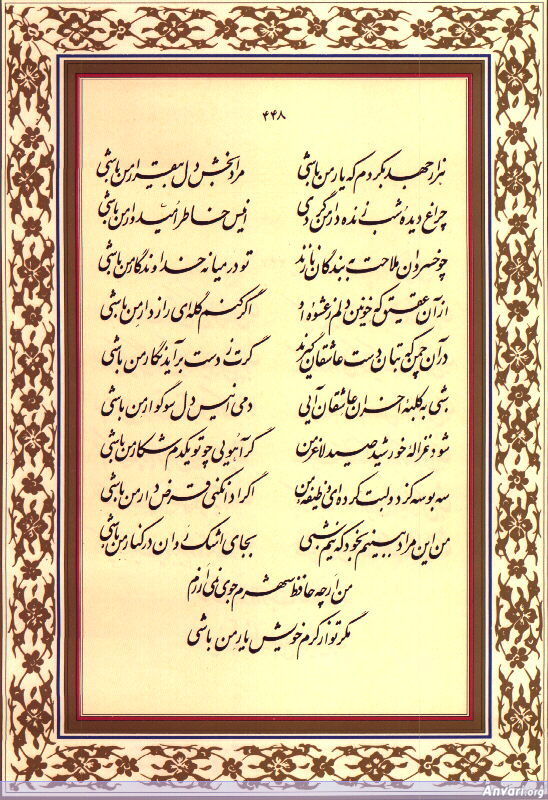 ۴۴۸
هزار جهد بکردم که یار من باشی مراد بخش دل بیقرار من باشی
چراغ دیده شب زنده دار من گردی انیس خاطر امیدوار من باشی
چو خسروان ملاحت به بندگان نازند تو در میانه خداوندگار من باشی
از آن عقیق که خونین دلم ز عشوه او اگر کنم گله‌ای راز دار من باشی
در آن چمن که بتان دست عاشقان گیرند گرت ز دست برآید نگار من باشی
شبی به کلبه احزان عاشقان آیی دمی انیس دل سوگوار من باشی
شود غزاله خورشید صید لاغر من گر آهویی چو تو یکدم شکار من باشی
سه بوسه کز دو لبت کرده‌ای وظیفه من اگر ادا نکنی قرض دار من باشی
من این مراد ببینم بخود که نیم شبی بجای اشک روان در کنار من باشی
من ار چه حافظ شهرم جوی نمی ارزم
مگر تو از کرم خویش یار من باشی
Anvari.org